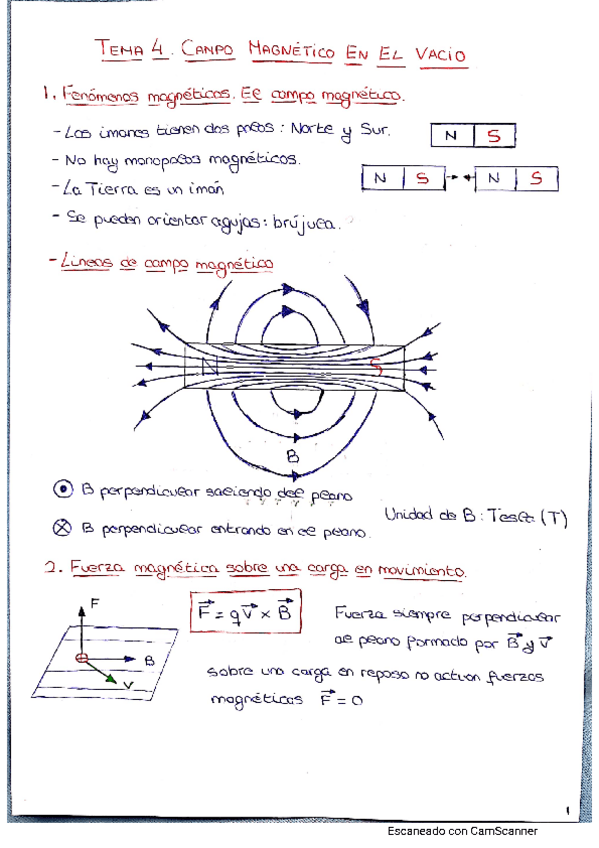 TEMA 4. CAMPO MAGNÉTICO EN EL VACIO
1. Fenómenos magnéticos. El campo magnético.
- Los imanes tienen dos polos: Norte y Sur.
N S
- No hay monopolos magnéticos.
N S N S
- La Tierra es un imán
- Se pueden orientar agujas: brújula.
- Lineas de campo magnético
N S
B
B perpendicular saliendo del plano
Unidad de B: Tesla (T)
B perpendicular entrando en el plano.
2. Fuerza magnética sobre una carga en movimiento.
F
B
V
F⃗ = qv⃗ × B⃗
Fuerza siempre perpendicular
al plano formado por B⃗ y v⃗
Sobre una carga en reposo no actúan fuerzas
magnéticas F⃗ = 0
1
Escaneado con CamScanner